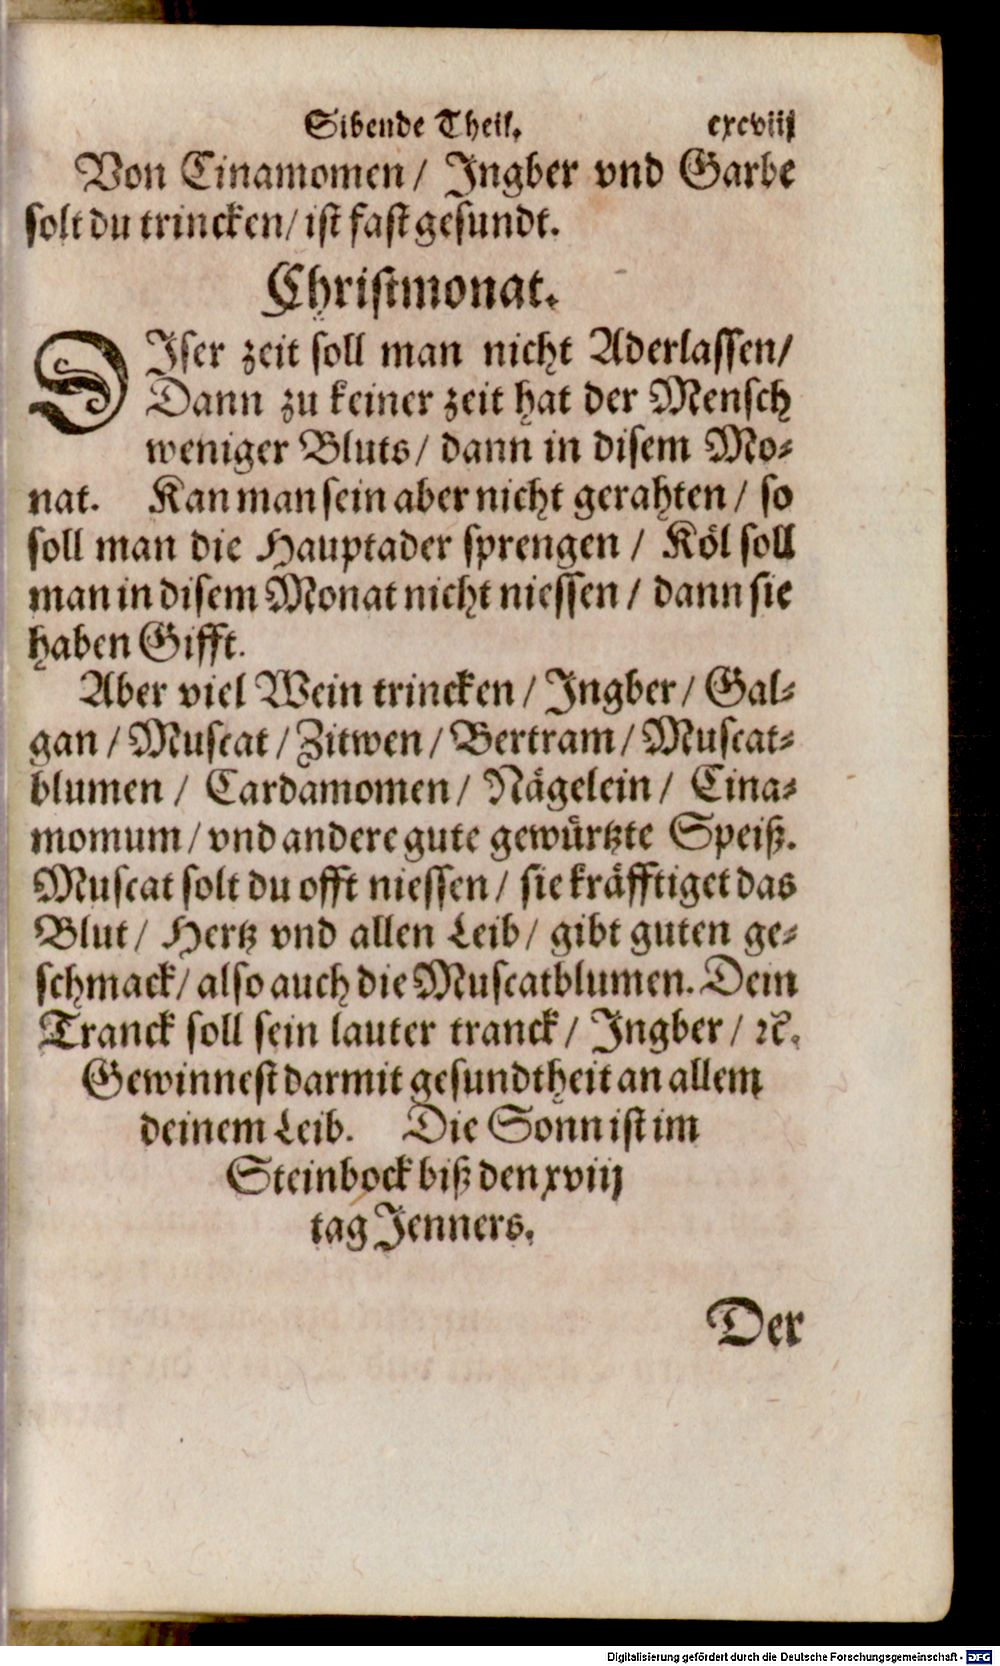 Sibende Theil. cxcviij
Von Cinamomen / Ingber vnd Garbe
solt du trincken / ist fast gesundt.
Christmonat.
DIser zeit soll man nicht Aderlassen /
Dann zu keiner zeit hat der Mensch
weniger Bluts / dann in disem Mo-
nat. Kan man sein aber nicht gerahten / so
soll man die Hauptader sprengen / Köl soll
man in disem Monat nicht niessen / dann sie
haben Gifft.
Aber viel Wein trincken / Ingber / Gal-
gan / Muscat / Zitwen / Bertram / Muscat-
blumen / Cardamomen / Nägelein / Cina-
momum / vnd andere gute gewürtzte Speiß.
Muscat solt du offt niessen / sie kräfftiget das
Blut / Hertz vnd allen Leib / gibt guten ge-
schmack / also auch die Muscatblumen. Dein
Tranck soll sein lauter tranck / Ingber / ꝛc.
Gewinnest darmit gesundtheit an allem
deinem Leib. Die Sonn ist im
Steinbock biß den xviij
tag Jenners.
Der
Digitalisierung gefördert durch die Deutsche Forschungsgemeinschaft - DFG